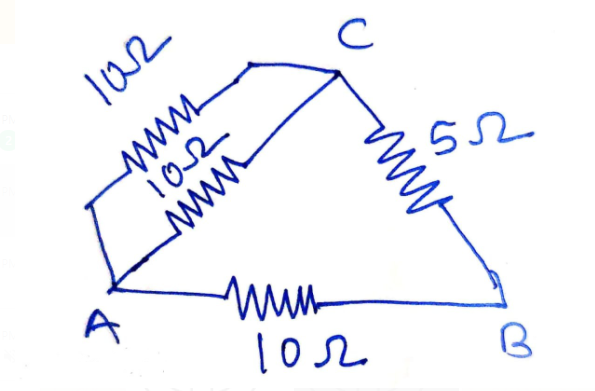 C
10Ω
10Ω
5Ω
A
10Ω
B